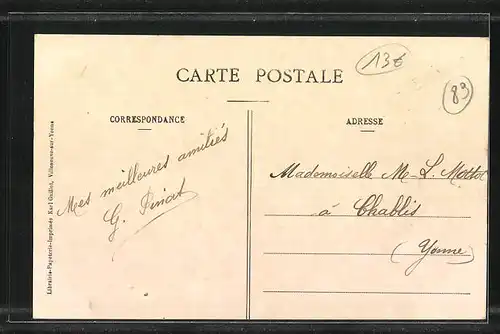 13€
89
CARTE POSTALE
CORRESPONDANCE
ADRESSE
Mes meilleures amitiés
G. Pinat
Mademoiselle M-L. Mottot
à Chablis
(Yonne)
Librairie-Papeterie-Imprimés Karl Guillot, Villeneuve-sur-Yonne